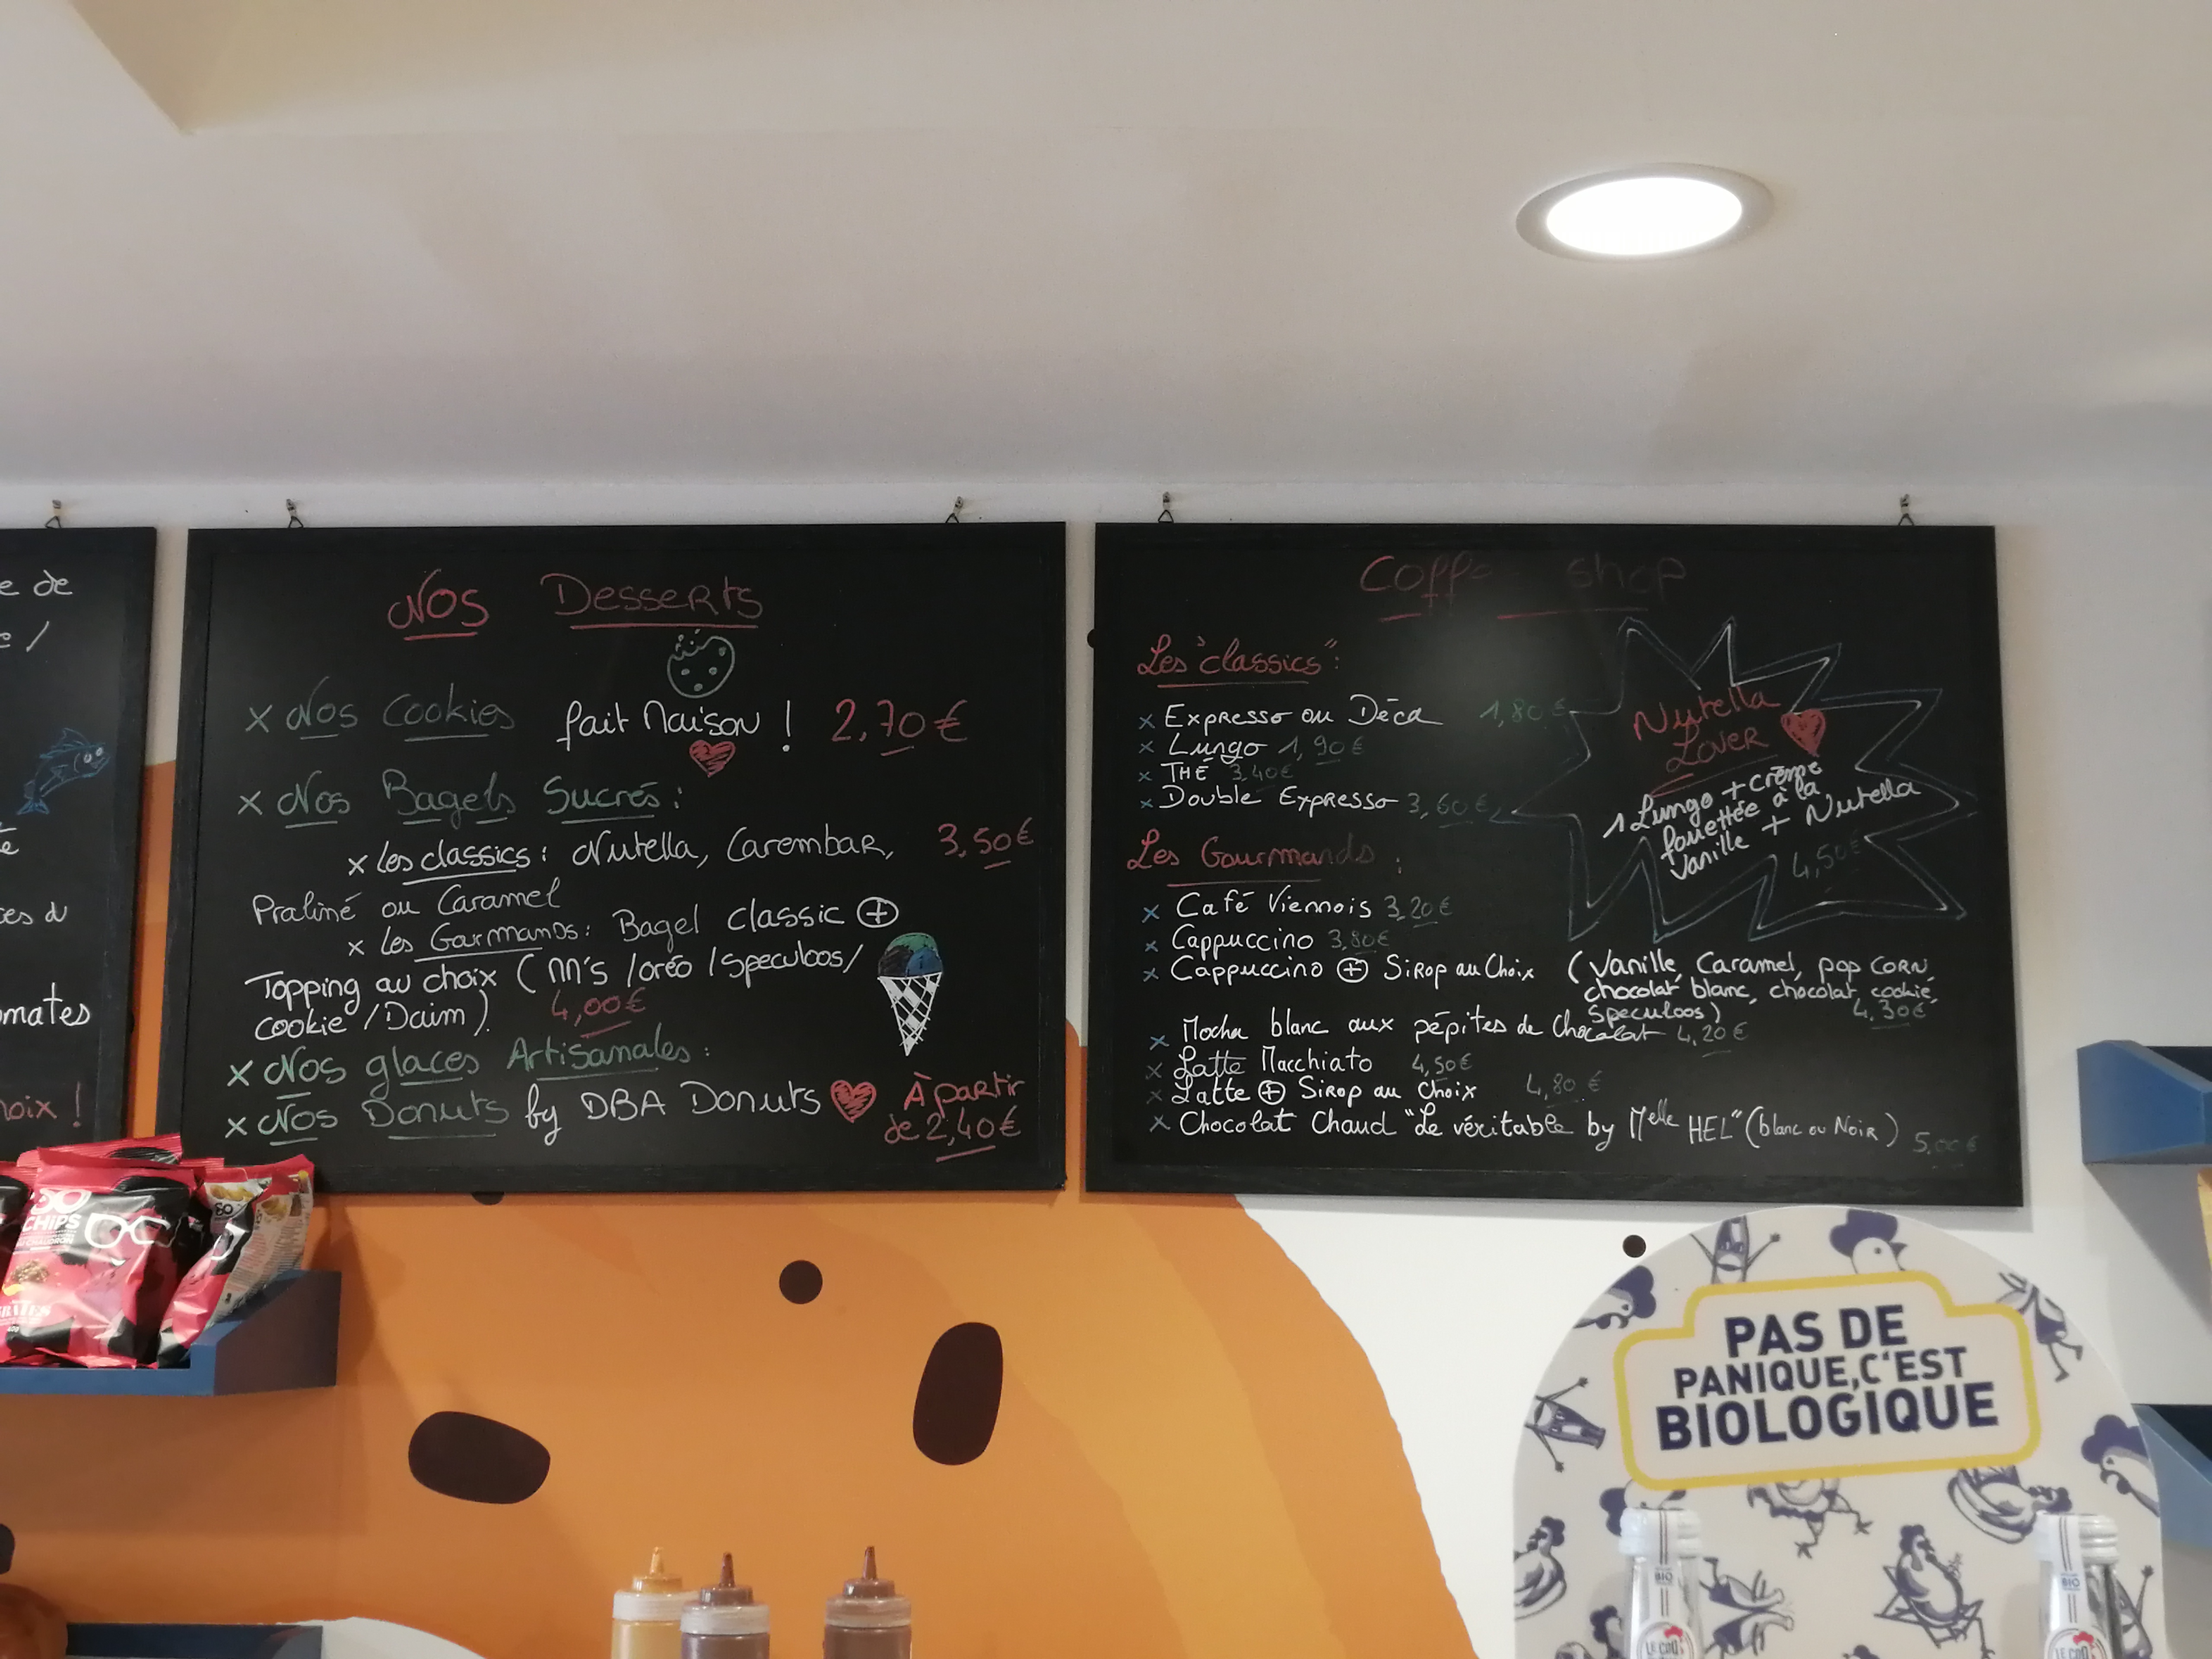 e de
e /
te
ces du
omates
hoix !
Nos Desserts
x Nos Cookies fait Maison ! 2,70€
x Nos Bagels Sucrés :
x Les classics : Nutella, Carembar, 3,50€
Praliné ou Caramel
x Les Gourmands : Bagel classic +
Topping au choix ( M'S / oréo / speculoos /
cookie / Daim ). 4,00€
x Nos glaces Artisanales :
x Nos Donuts by DBA Donuts À partir
de 2,40€
Coffe shop
Les "classics" :
x Expresso ou Déca 1,80€
x Lungo 1,90€
x THÉ 3,40€
x Double Expresso 3,60€
Nutella
Lover
1 Lungo + crème
fouettée à la
Vanille + Nutella
4,50€
Les Gourmands :
x Café Viennois 3,20€
x Cappuccino 3,80€
x Cappuccino + Sirop au Choix (Vanille, Caramel, pop CORN,
chocolat blanc, chocolat cookie,
Speculoos) 4,30€
x Mocha blanc aux pépites de Chocolat 4,20€
x Latte Macchiato 4,50€
x Latte + Sirop au Choix 4,80€
x Chocolat Chaud "Le véritable by Melle HEL" (blanc ou Noir) 5,00€
SO
CHIPS
SO
PAS DE
PANIQUE, C'EST
BIOLOGIQUE
BIO
LE COQ
BIO
LE COQ